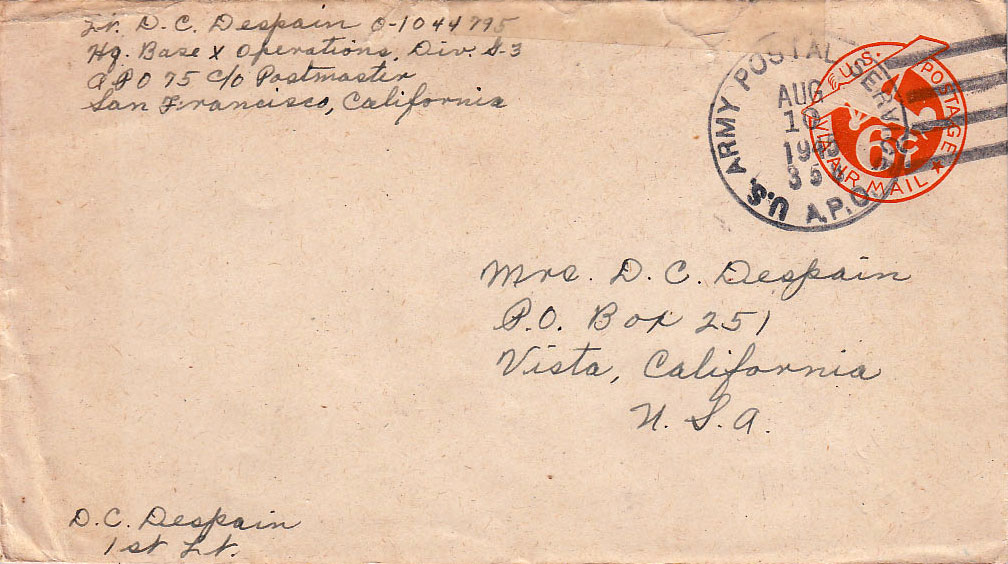 Lt. D. C. Despain O-1044795
Hq. Base X Operations, Div. S-3
APO 75 c/o Postmaster
San Francisco, California
U.S. ARMY POSTAL SERVICE
AUG
10
A.P.O.
U.S. POSTAGE
6¢
VIA AIR MAIL
Mrs. D. C. Despain
P.O. Box 251
Vista, California
U. S. A.
D. C. Despain
1st Lt.